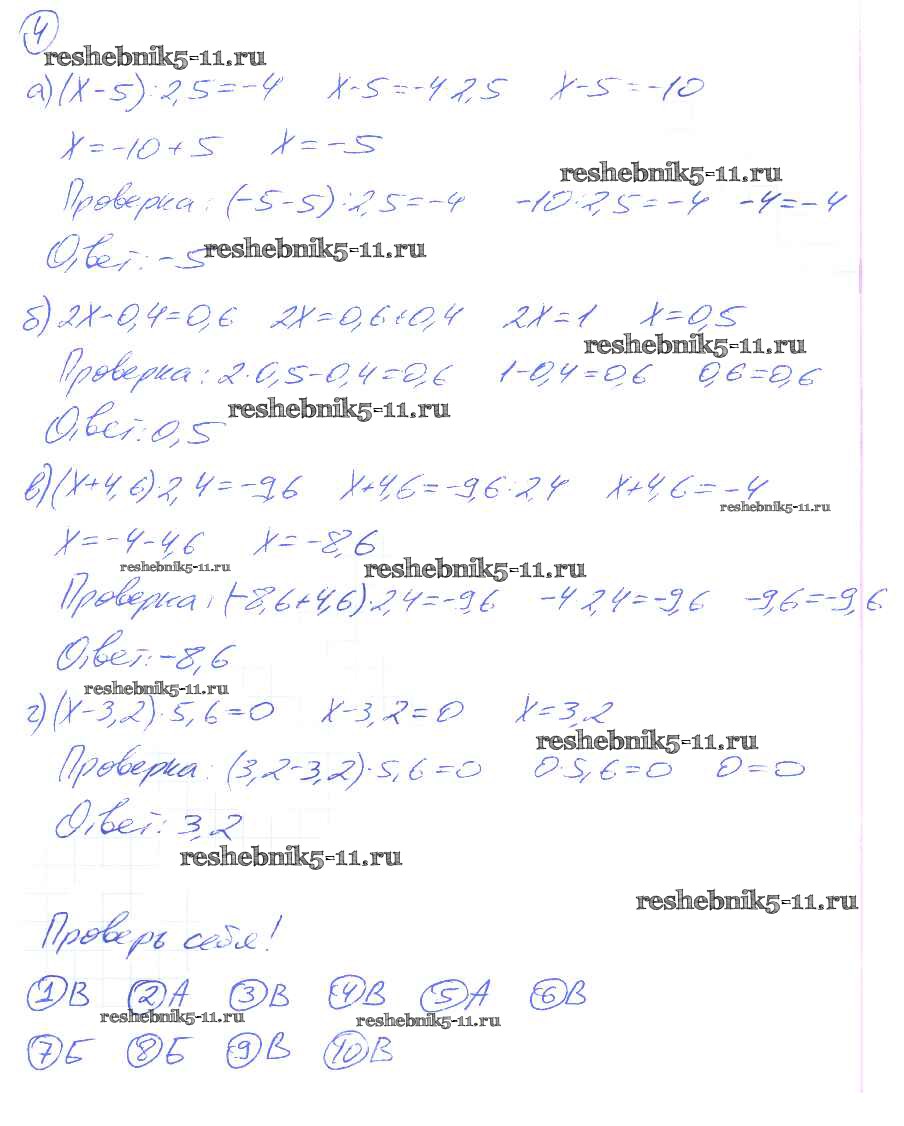 4
reshebnik5-11.ru
а) (x-5):2,5=-4 x-5=-4·2,5 x-5=-10
x=-10+5 x=-5
reshebnik5-11.ru
Проверка: (-5-5):2,5=-4 -10:2,5=-4 -4=-4
Ответ: -5
reshebnik5-11.ru
б) 2x-0,4=0,6 2x=0,6+0,4 2x=1 x=0,5
reshebnik5-11.ru
Проверка: 2·0,5-0,4=0,6 1-0,4=0,6 0,6=0,6
reshebnik5-11.ru
Ответ: 0,5
в) (x+4,6)·2,4=-9,6 x+4,6=-9,6:2,4 x+4,6=-4
reshebnik5-11.ru
x=-4-4,6 x=-8,6
reshebnik5-11.ru reshebnik5-11.ru
Проверка: (-8,6+4,6)·2,4=-9,6 -4·2,4=-9,6 -9,6=-9,6
Ответ: -8,6
reshebnik5-11.ru
г) (x-3,2)·5,6=0 x-3,2=0 x=3,2
reshebnik5-11.ru
Проверка: (3,2-3,2)·5,6=0 0·5,6=0 0=0
Ответ: 3,2
reshebnik5-11.ru
reshebnik5-11.ru
Проверь себя!
1 В 2 А 3 В 4 В 5 А 6 В
reshebnik5-11.ru reshebnik5-11.ru
7 Б 8 Б 9 В 10 В